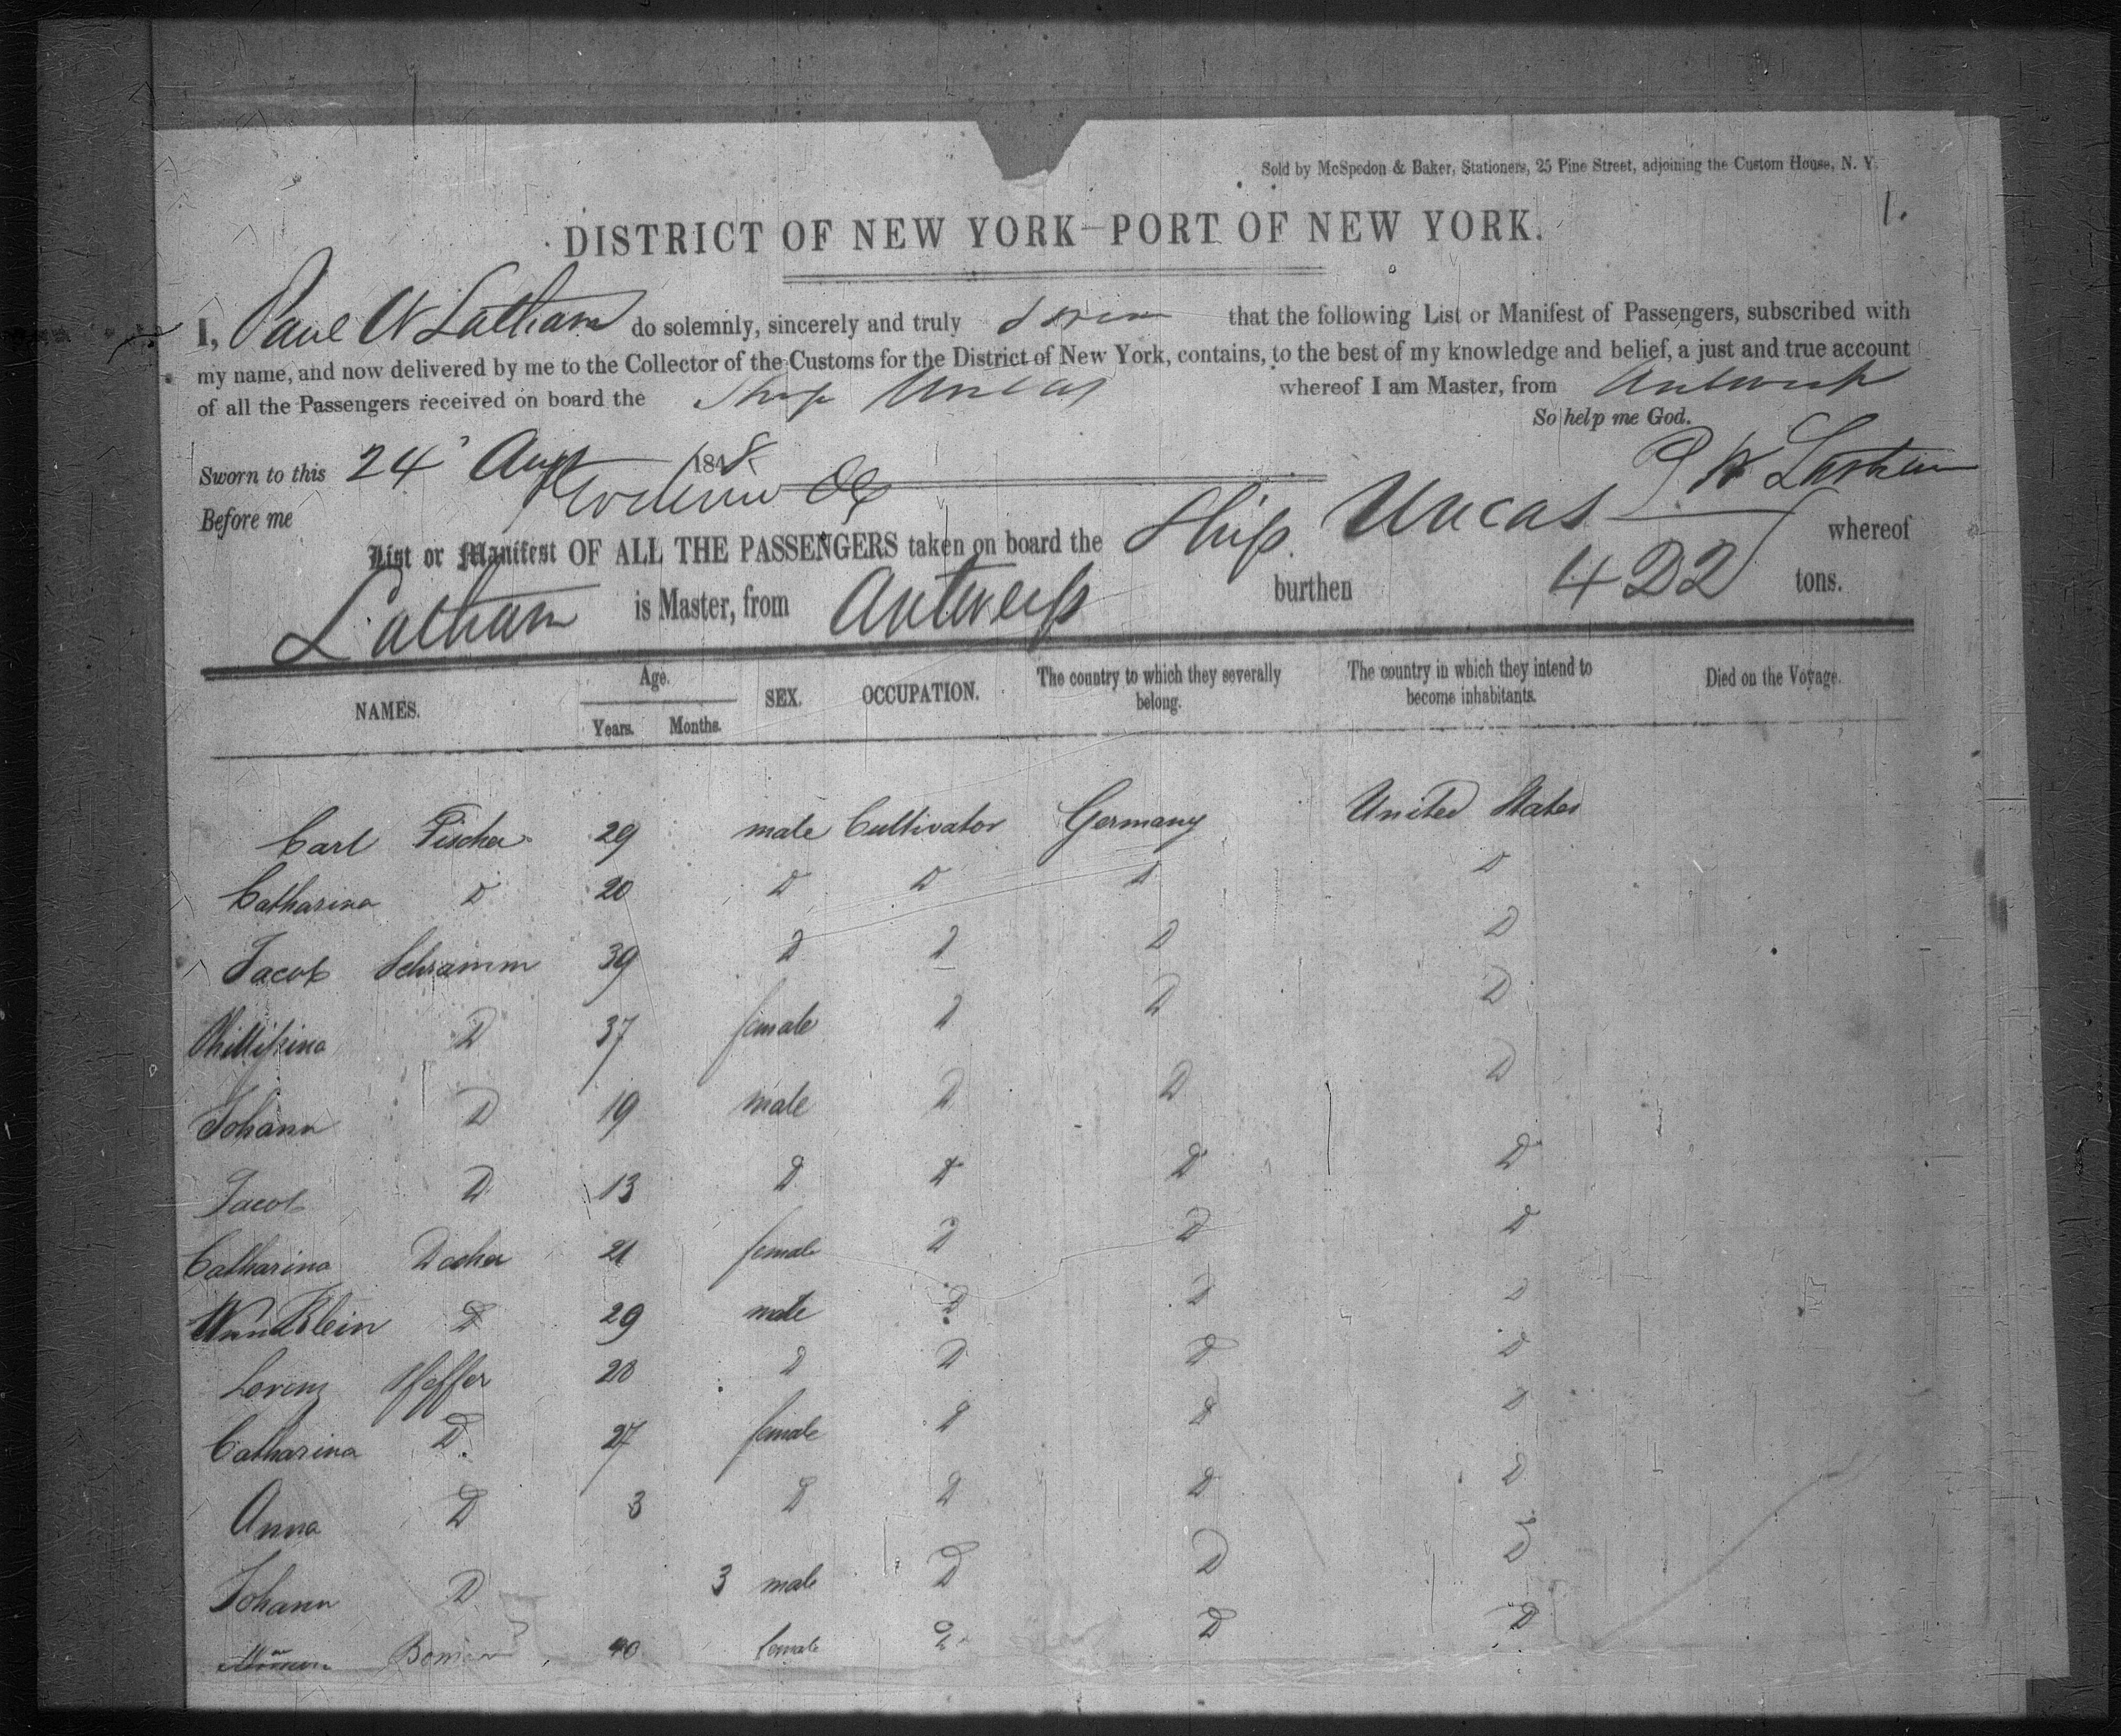 Sold by McSpedon & Baker, Stationers, 25 Pine Street, adjoining the Custom House, N. Y.
1.
DISTRICT OF NEW YORK—PORT OF NEW YORK.
I, Paul W Latham do solemnly, sincerely and truly that the following List or Manifest of Passengers, subscribed with
my name, and now delivered by me to the Collector of the Customs for the District of New York, contains, to the best of my knowledge and belief, a just and true account
of all the Passengers received on board the Ship Uncas whereof I am Master, from Antwerp
So help me God.
Sworn to this 24 Augt 1848. P W Latham
Before me
List or Manifest OF ALL THE PASSENGERS taken on board the Ship Uncas whereof
Latham is Master, from Antwerp burthen 422 tons.
NAMES. Age. Years. Months. SEX. OCCUPATION. The country to which they severally belong. The country in which they intend to become inhabitants. Died on the Voyage.
Carl Fischer 29 male Cultivator Germany United States
Catharina D 20 D D D D
Jacob Schramm 39 D D D D
Phillipina D 37 female D D D
Johann D 19 male D D D
Jacob D 13 D D D D
Catharina Dacher 21 female D D D
Klein D 29 male D D D
Lorenz Pfeffer 28 D D D D
Catharina D. 27 female D D D
Anna D 3 D D D D
Johann D 3 male D D D
40 female D D D